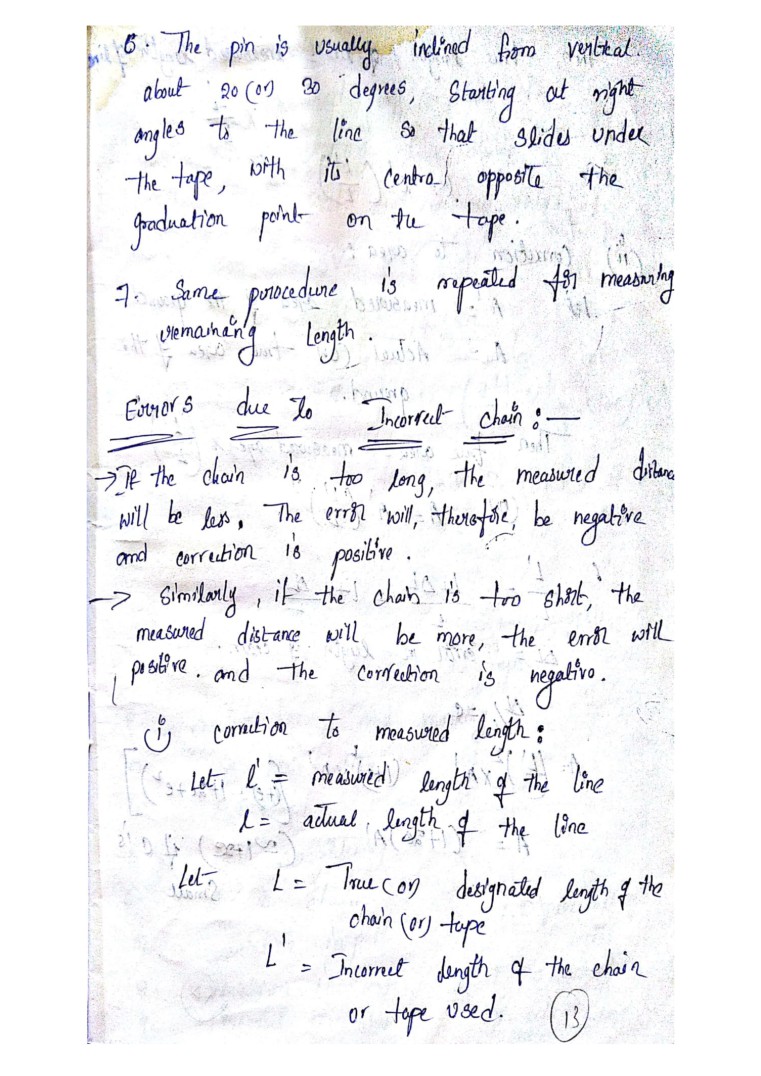 6. The pin is usually inclined from vertical.
about 20 (or) 30 degrees, Starting at right
angles to the line so that slides under
the tape, with its central opposite the
graduation point on the tape.
7. Same procedure is repeated for measuring
remaining length.
Errors due to Incorrect chain :—
→ If the chain is too long, the measured distance
will be less. The error will, therefore, be negative
and correction is positive.
→ Similarly, if the chain is too short, the
measured distance will be more, the error will
positive. and the correction is negative.
(i) correction to measured length :
Let, l' = measured length of the line
l = actual length of the line
Let L = True (or) designated length of the
chain (or) tape
L' = Incorrect length of the chain
or tape used.
13